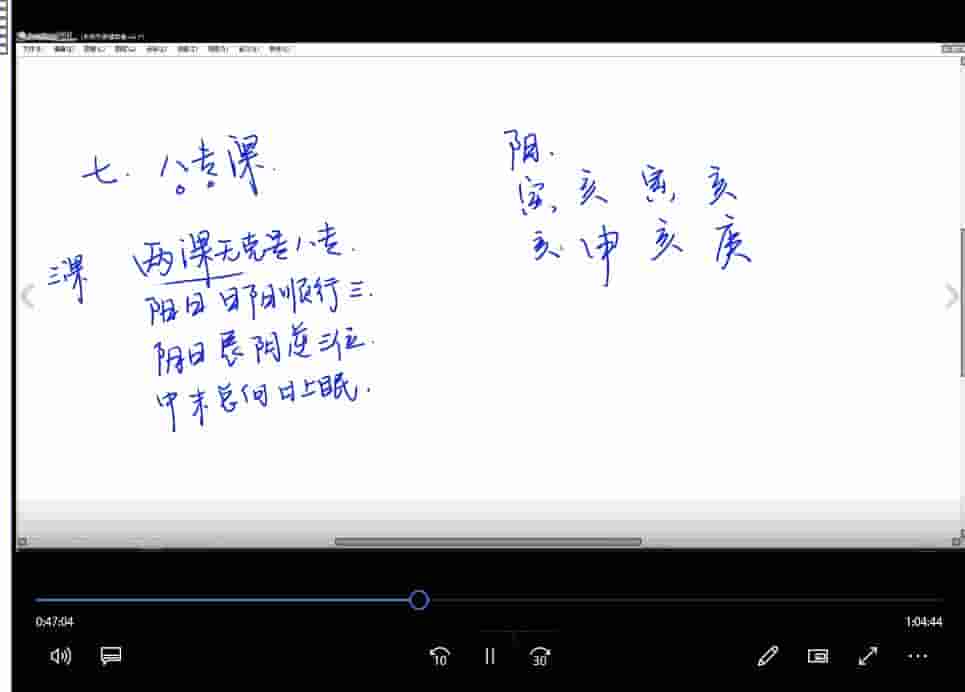 七. 八专课.
三课
两课无克是八专.
阳日日阳顺行三.
阴日辰阴逆三位.
中末总向日上眠.
阳.
寅, 亥 寅, 亥
亥 申 亥 庚
0:47:04
1:04:44
10
30